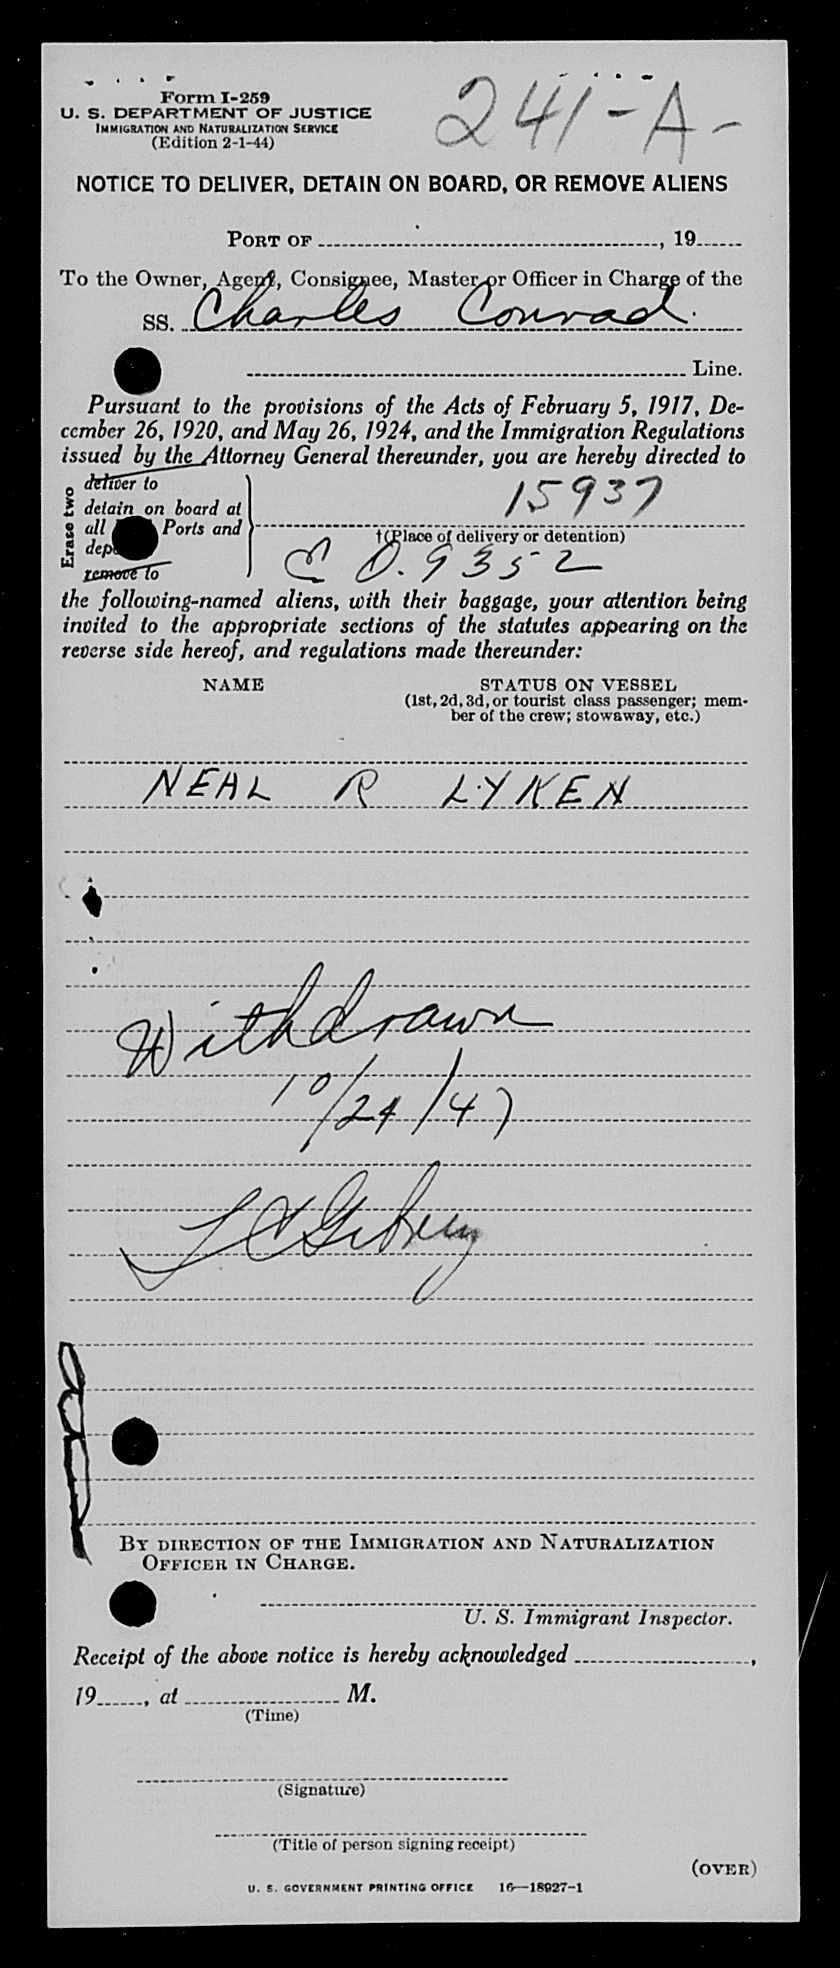 Form I-259
U. S. DEPARTMENT OF JUSTICE
IMMIGRATION AND NATURALIZATION SERVICE
(Edition 2-1-44)
241-A-
NOTICE TO DELIVER, DETAIN ON BOARD, OR REMOVE ALIENS
PORT OF ______, 19___
To the Owner, Agent, Consignee, Master or Officer in Charge of the
SS. Charles Conrad.
______ Line.
Pursuant to the provisions of the Acts of February 5, 1917, De-
cember 26, 1920, and May 26, 1924, and the Immigration Regulations
issued by the Attorney General thereunder, you are hereby directed to
Erase two
deliver to
detain on board at
all Ports and
remove to
15937
†(Place of delivery or detention)
9352
the following-named aliens, with their baggage, your attention being
invited to the appropriate sections of the statutes appearing on the
reverse side hereof, and regulations made thereunder:
NAME
STATUS ON VESSEL
(1st, 2d, 3d, or tourist class passenger; mem-
ber of the crew; stowaway, etc.)
NEAL R LYKEN
Withdrawn
10/24/47
BY DIRECTION OF THE IMMIGRATION AND NATURALIZATION
OFFICER IN CHARGE.
U. S. Immigrant Inspector.
Receipt of the above notice is hereby acknowledged ______,
19___, at ______ M.
(Time)
(Signature)
(Title of person signing receipt)
(OVER)
U. S. GOVERNMENT PRINTING OFFICE 16—18927-1